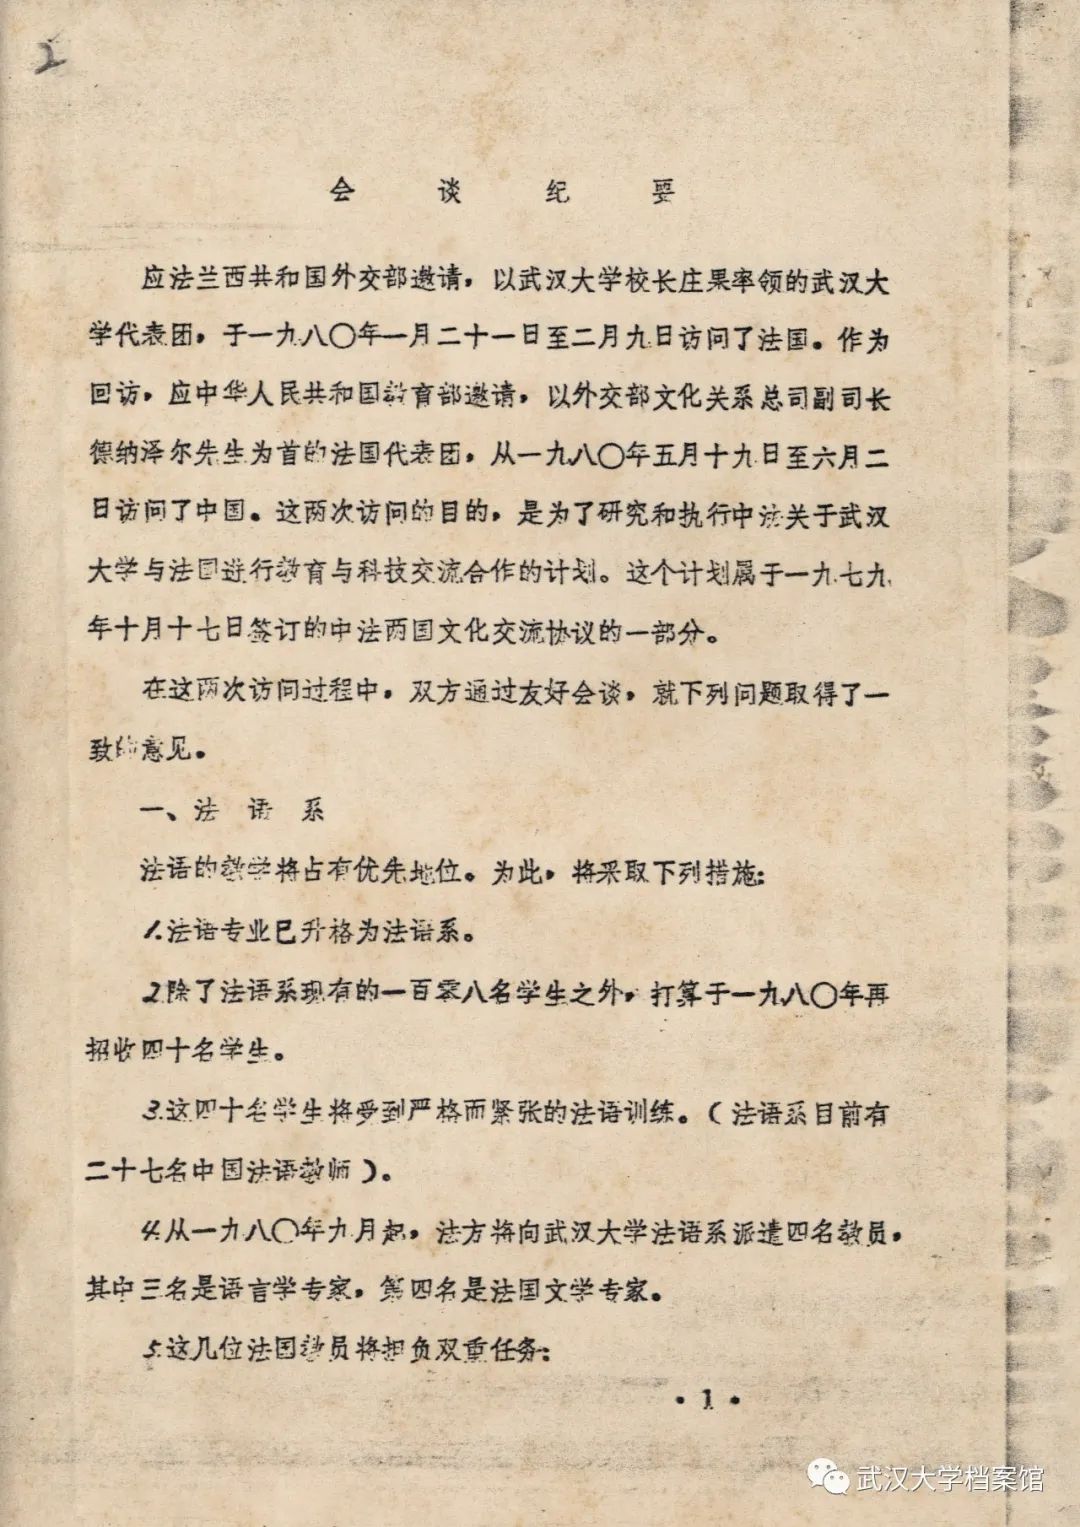 2
会谈纪要
应法兰西共和国外交部邀请，以武汉大学校长庄果率领的武汉大
学代表团，于一九八〇年一月二十一日至二月九日访问了法国。作为
回访，应中华人民共和国教育部邀请，以外交部文化关系总司副司长
德纳泽尔先生为首的法国代表团，从一九八〇年五月十九日至六月二
日访问了中国。这两次访问的目的，是为了研究和执行中法关于武汉
大学与法国进行教育与科技交流合作的计划。这个计划属于一九七九
年十月十七日签订的中法两国文化交流协议的一部分。
在这两次访问过程中，双方通过友好会谈，就下列问题取得了一
致的意见。
一、法语系
法语的教学将占有优先地位。为此，将采取下列措施：
1.法语专业已升格为法语系。
2.除了法语系现有的一百零八名学生之外，打算于一九八〇年再
招收四十名学生。
3.这四十名学生将受到严格而紧张的法语训练。（法语系目前有
二十七名中国法语教师）。
4.从一九八〇年九月起，法方将向武汉大学法语系派遣四名教员，
其中三名是语言学专家，第四名是法国文学专家。
5.这几位法国教员将担负双重任务：
·1·
武汉大学档案馆